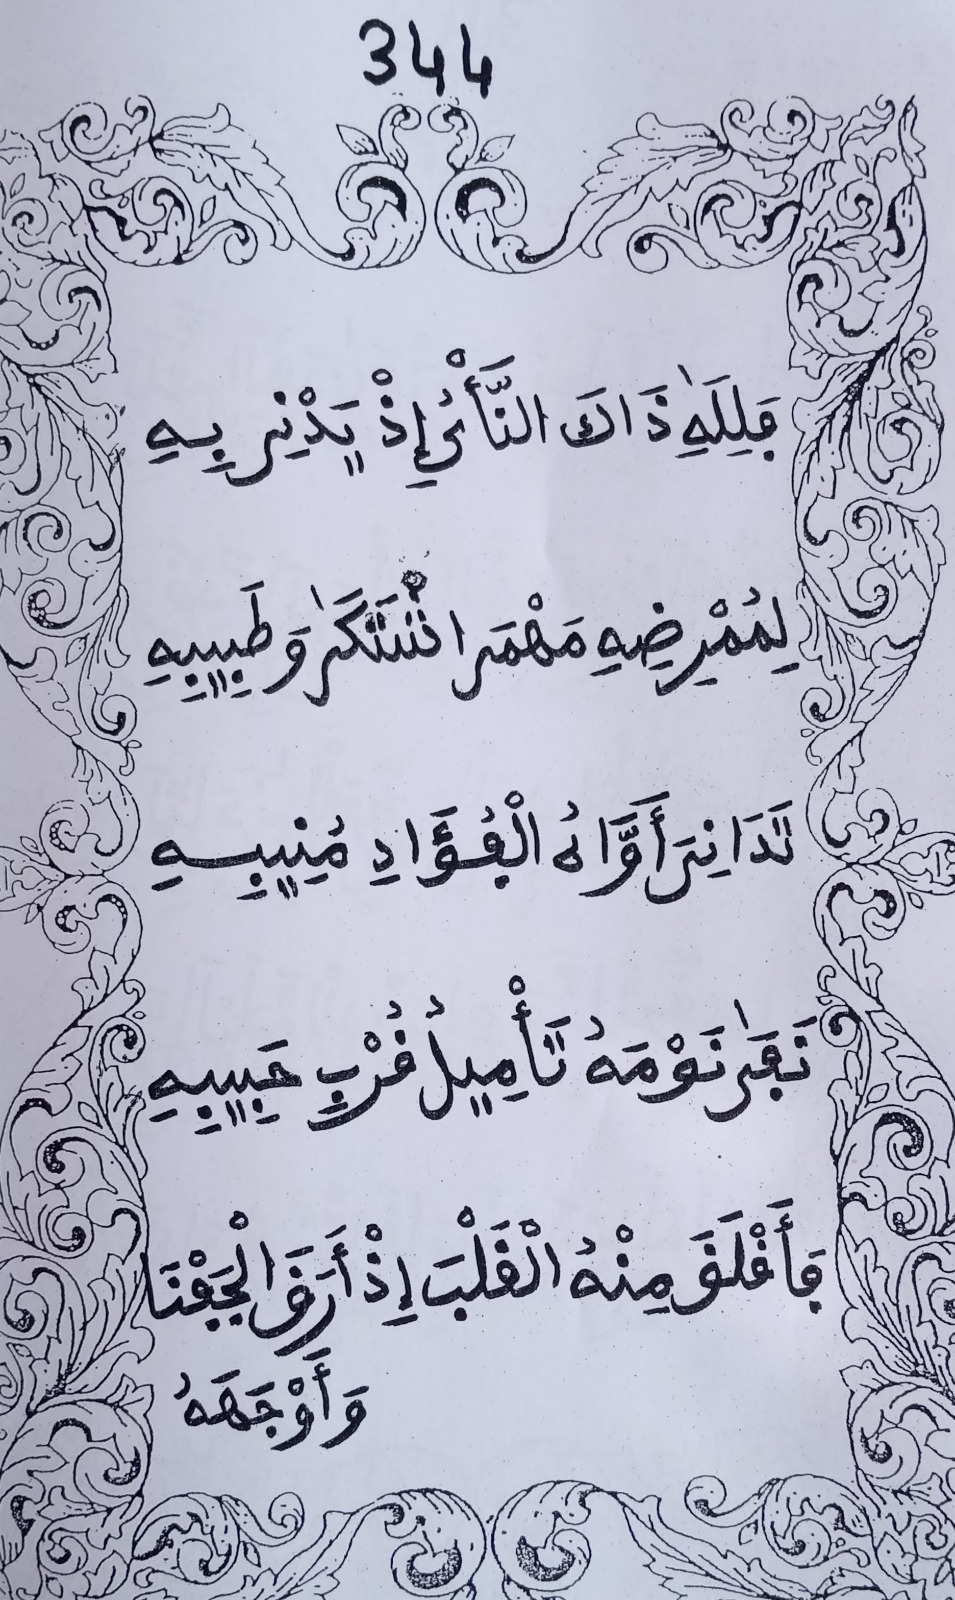 344
فَلِلَّهِ ذَاكَ النَّأْيُ إِذْ يَدْنِي بِهِ
لِمُمْرِضِهِ مَهْمَا اشْتَكَىٰ وَطَبِيبِهِ
تَدَانِيَ أَوَّاهُ الْفُؤَادِ مُنِيبِهِ
نَفَىٰ نَوْمَهُ تَأْمِيلُ قُرْبِ حَبِيبِهِ
فَأَقْلَقَ مِنْهُ الْقَلْبَ إِذْ أَرَّقَ الْجَفْنَا
وَأَوْجَهَهُ